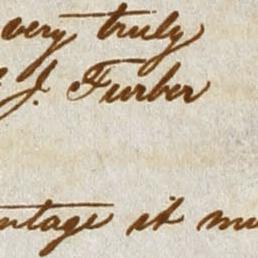 very truly
J. Furber
ntage it mu